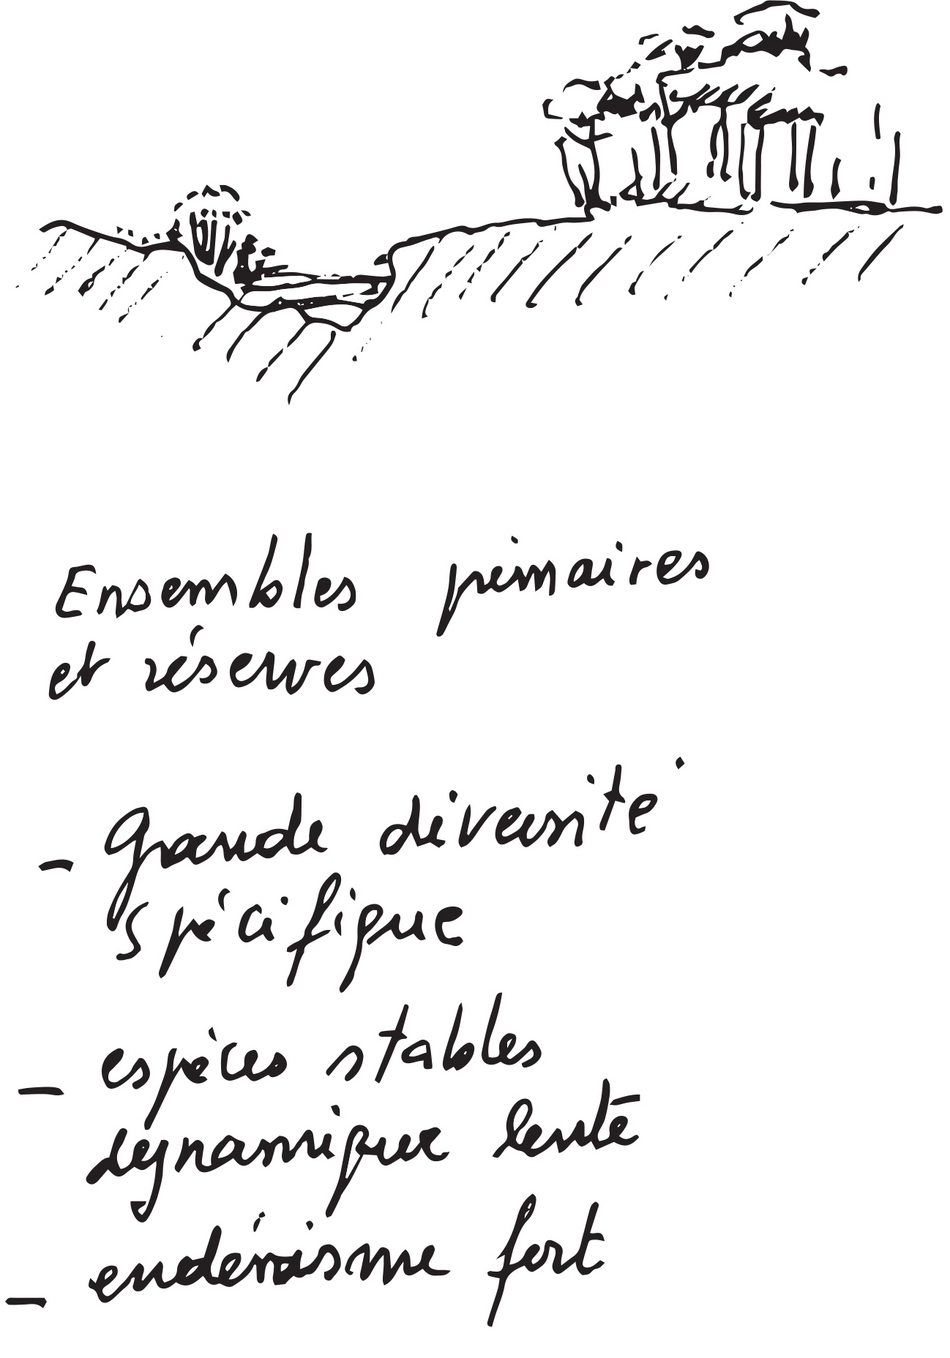 Ensembles primaires
et réserves
- Grande diversité
spécifique
- espèces stables
dynamique lente
- endémisme fort